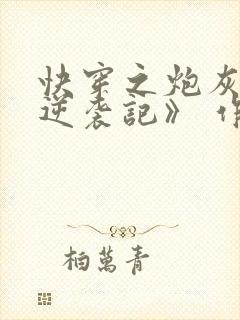 快穿之炮灰
逆袭記》 作
柏萬青